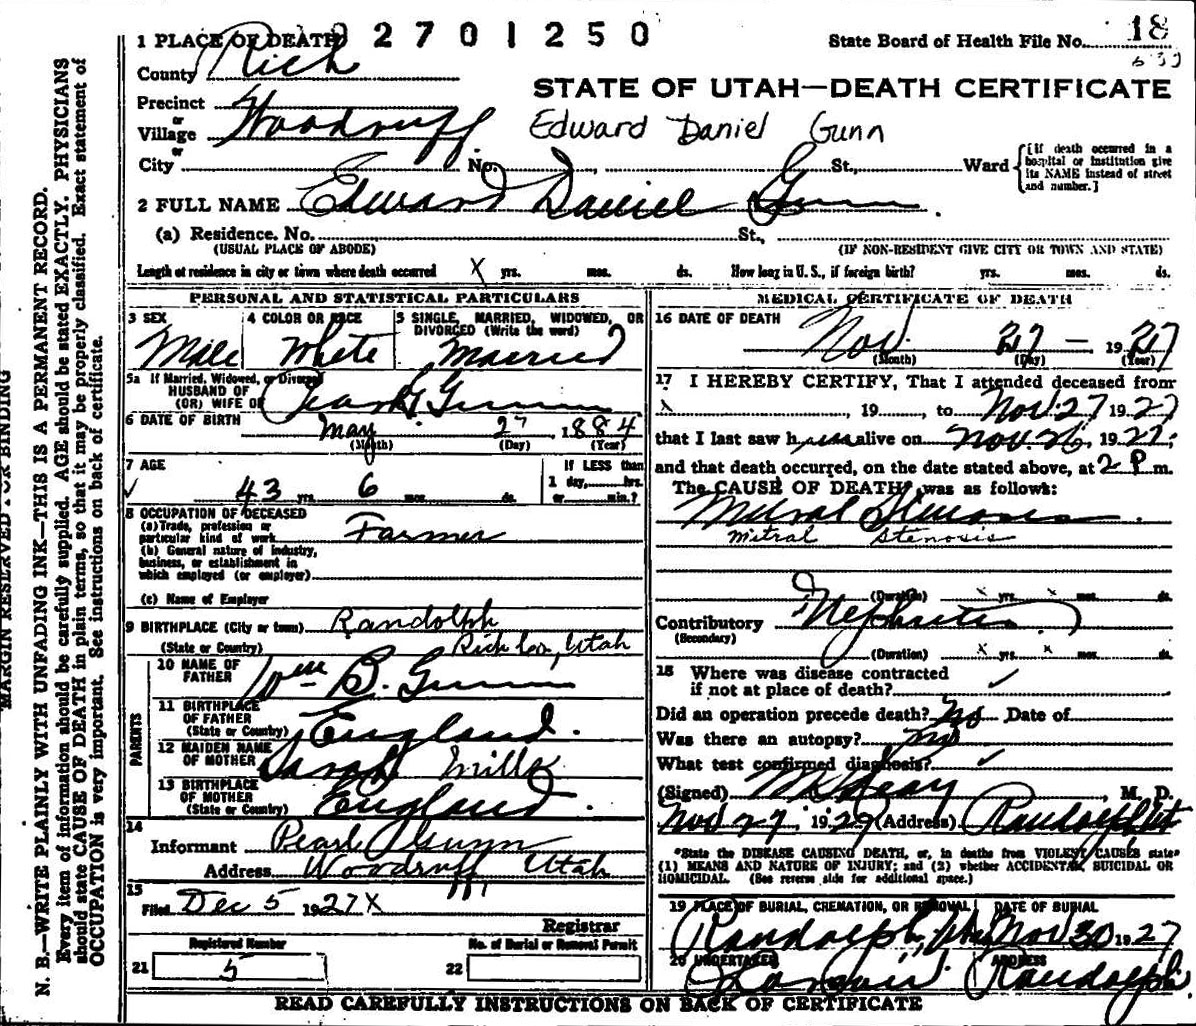 2701250
State Board of Health File No. 18
1 PLACE OF DEATH
County Rich
STATE OF UTAH—DEATH CERTIFICATE
Precinct
or
Village Woodruff
Edward Daniel Gunn
or
City No. St., Ward
[If death occurred in a hospital or institution give its NAME instead of street and number.]
2 FULL NAME Edward Daniel Gunn
(a) Residence. No. St.,
(USUAL PLACE OF ABODE) (IF NON-RESIDENT GIVE CITY OR TOWN AND STATE)
Length of residence in city or town where death occurred X yrs. mos. ds. How long in U. S., if foreign birth? yrs. mos. ds.
PERSONAL AND STATISTICAL PARTICULARS
3 SEX 4 COLOR OR RACE 5 SINGLE, MARRIED, WIDOWED, OR DIVORCED (Write the word)
Male White Married
5a If Married, Widowed, or Divorced
HUSBAND OF
(OR) WIFE OF Gunn
6 DATE OF BIRTH May 27 1884
(Month) (Day) (Year)
7 AGE If LESS than
1 day, hrs.
43 yrs. 6 mos. ds. or min.?
8 OCCUPATION OF DECEASED
(a) Trade, profession or
particular kind of work Farmer
(b) General nature of industry,
business, or establishment in
which employed (or employer)
(c) Name of Employer
9 BIRTHPLACE (City or town) Randolph
(State or Country) Rich Co, Utah
PARENTS
10 NAME OF
FATHER Wm B. Gunn
11 BIRTHPLACE
OF FATHER
(State or Country) England.
12 MAIDEN NAME
OF MOTHER Sarah Mills
13 BIRTHPLACE
OF MOTHER
(State or Country) England.
14
Informant Pearl Gunn
Address Woodruff Utah
15
Filed Dec 5 1927 X
Registrar
Registered Number No. of Burial or Removal Permit
21 5 22
MEDICAL CERTIFICATE OF DEATH
16 DATE OF DEATH
Nov. 27 — 1927
(Month) (Day) (Year)
17 I HEREBY CERTIFY, That I attended deceased from
X , 19 , to Nov. 27 1927
that I last saw h alive on Nov. 26, 1927;
and that death occurred, on the date stated above, at 2 P m.
The CAUSE OF DEATH* was as follows:
Mitral Stenosis.
Mitral Stenosis
(Duration) x yrs. x mos. ds.
Contributory Nephritis
(Secondary)
(Duration) x yrs. x mos. ds.
18 Where was disease contracted
if not at place of death?
Did an operation precede death? No Date of
Was there an autopsy? no
What test confirmed diagnosis?
(Signed) , M. D.
Nov 27, 1927 (Address) Randolph Ut
*State the DISEASE CAUSING DEATH, or, in deaths from VIOLENT CAUSES state
(1) MEANS AND NATURE OF INJURY; and (2) whether ACCIDENTAL, SUICIDAL OR
HOMICIDAL. (See reverse side for additional space.)
19 PLACE OF BURIAL, CREMATION, OR REMOVAL DATE OF BURIAL
Randolph, Utah Nov 30 1927
20 UNDERTAKER ADDRESS
Randolph
READ CAREFULLY INSTRUCTIONS ON BACK OF CERTIFICATE
MARGIN RESERVED FOR BINDING
N. B.—WRITE PLAINLY WITH UNFADING INK—THIS IS A PERMANENT RECORD.
Every item of information should be carefully supplied. AGE should be stated EXACTLY. PHYSICIANS
should state CAUSE OF DEATH in plain terms, so that it may be properly classified. Exact statement of
OCCUPATION is very important. See instructions on back of certificate.